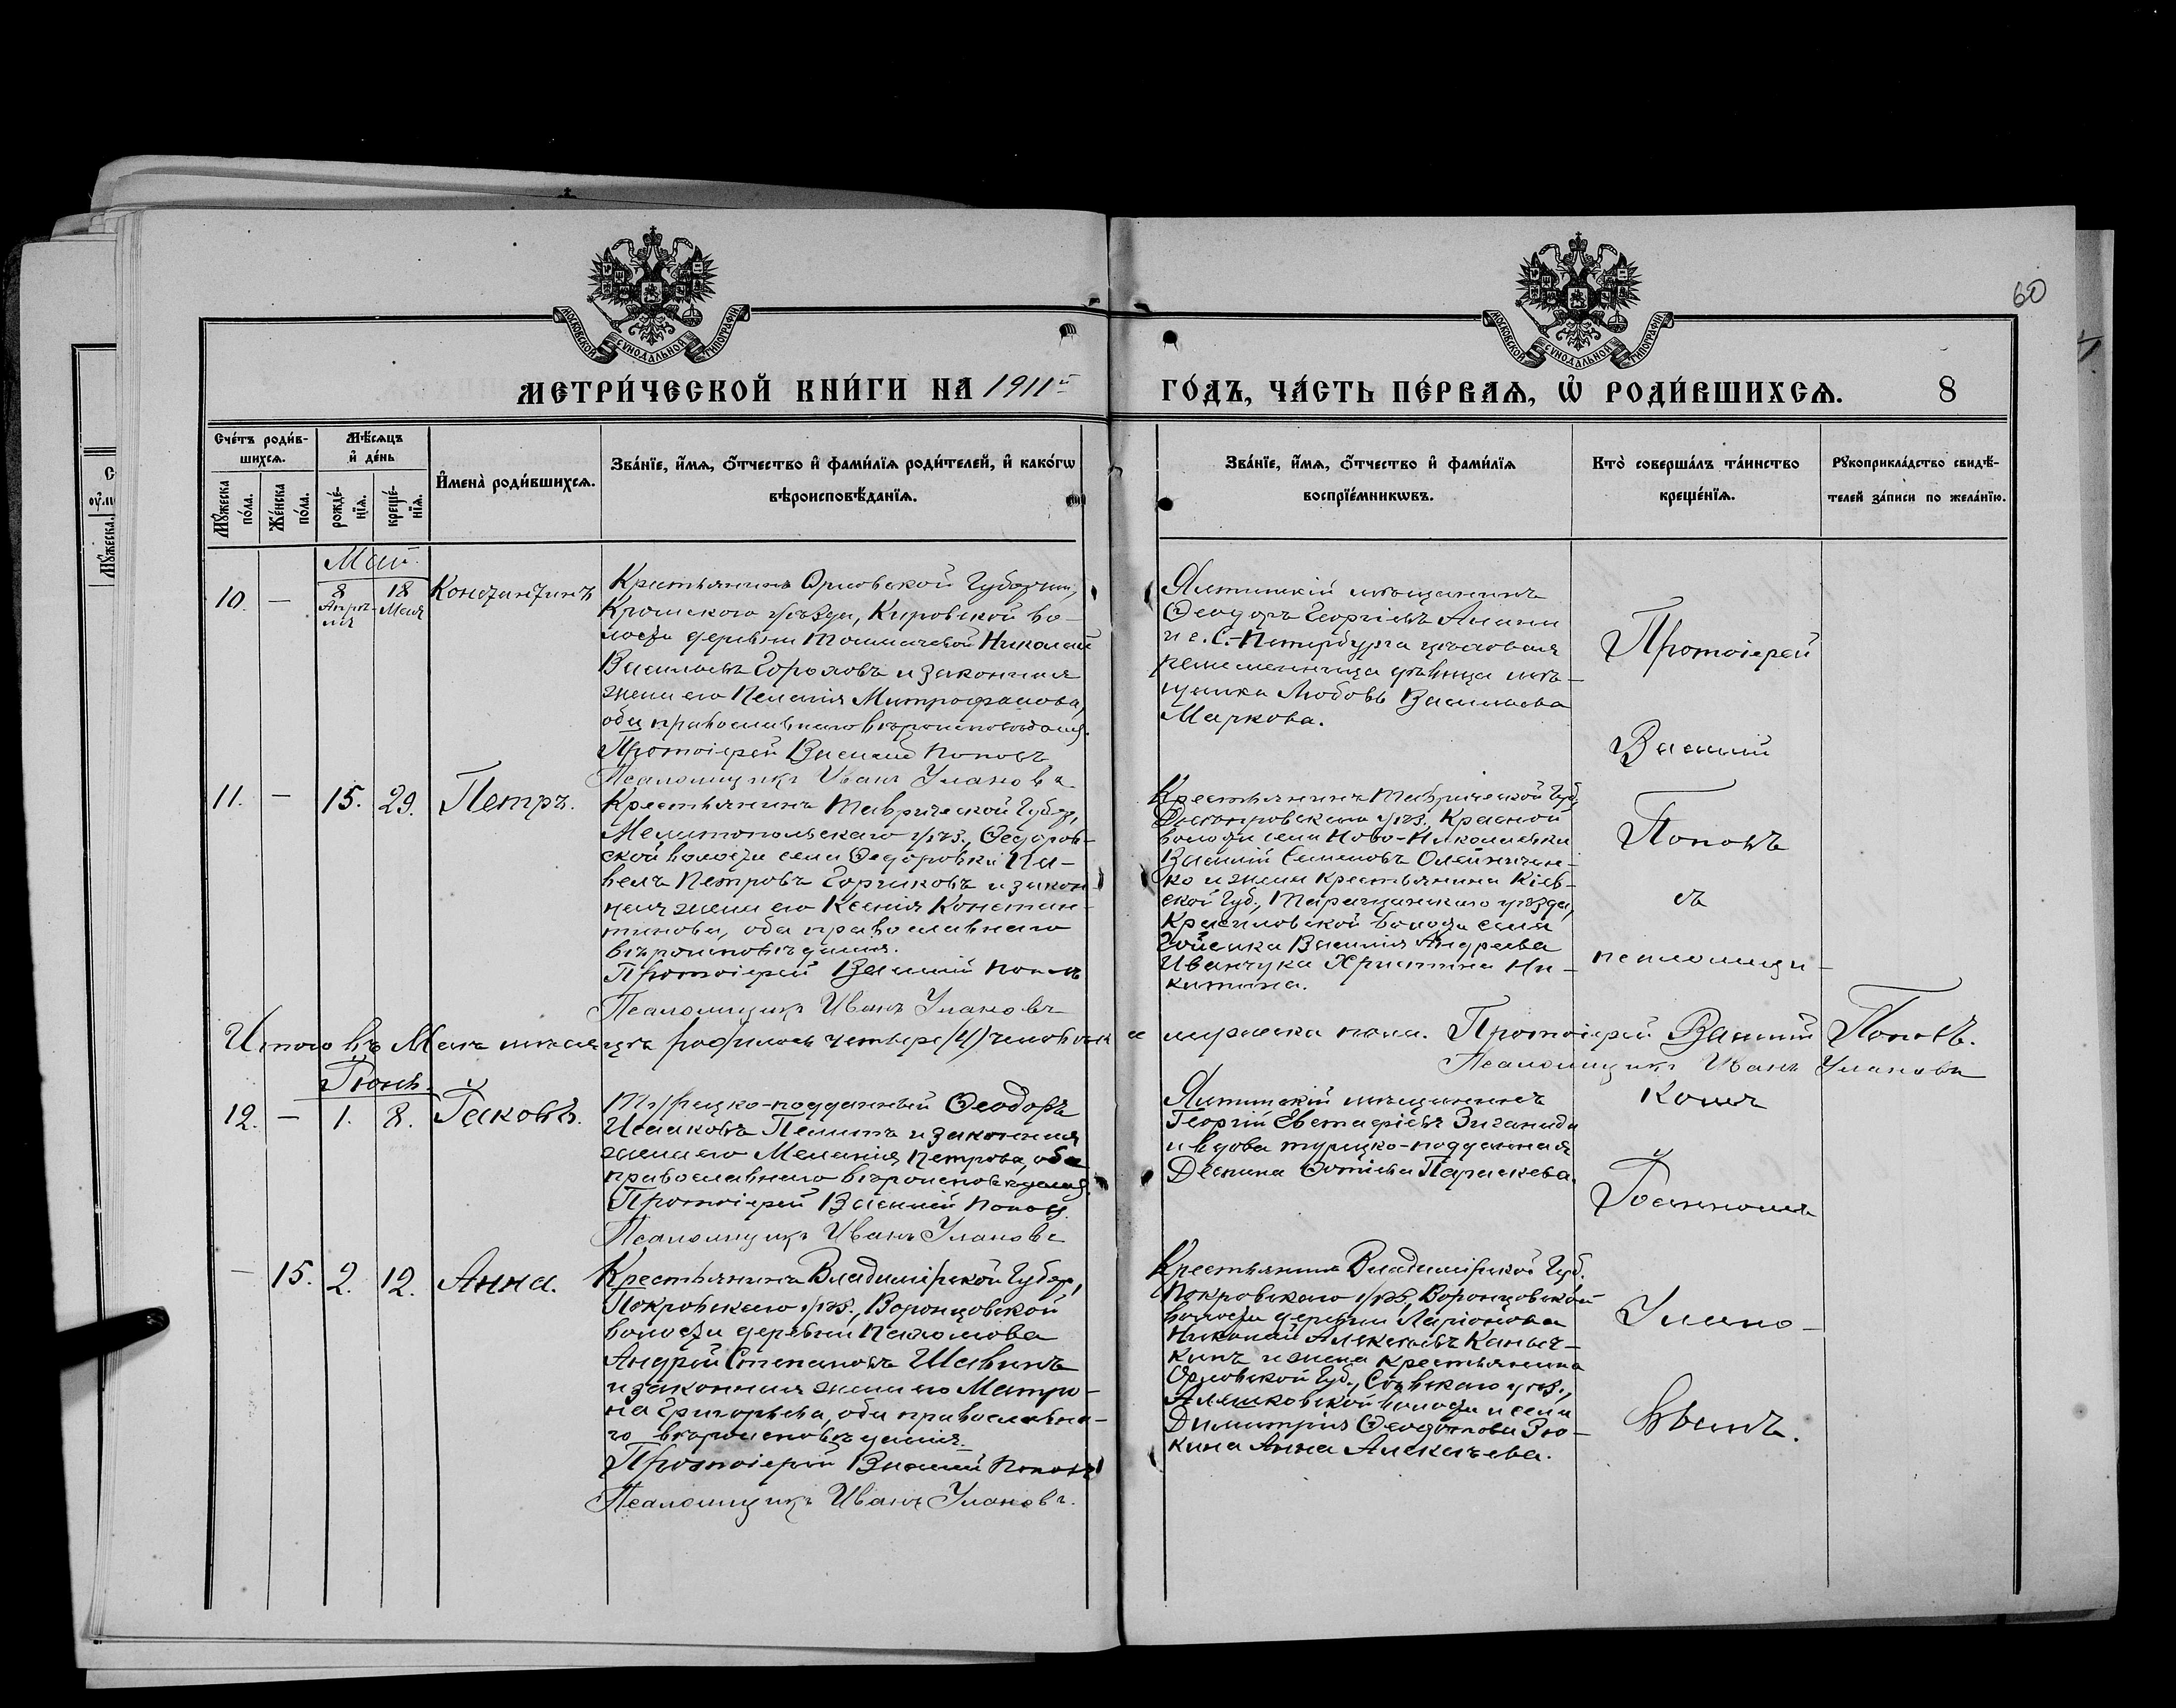 МОСКОВСКОЙ СѴНОДАЛЬНОЙ ТИПОГРАФІИ
МОСКОВСКОЙ СѴНОДАЛЬНОЙ ТИПОГРАФІИ
60
МЕТРИ́ЧЕСКОЙ КНИ́ГИ НА 1911й
ГО́ДЪ, ЧА́СТЬ ПЕ́РВАѦ, Ѽ РОДИ́ВШИХСѦ. 8
Сче́тъ роди́в-
шихсѧ.
Мꙋ́жеска по́ла.
Же́нска по́ла.
Мѣ́сѧцъ
и҆ де́нь
рожде́-
нїѧ.
креще́-
нїѧ.
И҆мена̀ роди́вшихсѧ.
Зва́нїе, и҆́мѧ, ѻ҆́тчество и҆ фами́лїѧ роди́телей, и҆ како́гѡ
вѣроисповѣ́данїѧ.
Зва́нїе, и҆́мѧ, ѻ҆́тчество и҆ фами́лїѧ
воспрїе́мникѡвъ.
Кто̀ соверша́лъ та́инство
креще́нїѧ.
Рꙋкоприкла́дство свидѣ́-
телей за́писи по жела́нїю.
Май.
10. — 8 Апрѣля 18 Мая Константинъ
Крестьянинъ Орловской Губерніи,
Кромского уѣзда, Кировской во-
лости деревни Николай
Васильевъ Гороховъ и законная
жена его Пелагія Митрофанова,
оба православнаго вѣроисповѣданія.
Протоіерей Василій Поповъ
Псаломщикъ Иванъ Улановъ
Ялтинскій мѣщанинъ
Ѳеодоръ Георгіевъ
и г. С.-Петербурга цеховая
ремесленница дѣвица мѣ-
щанка Любовь Васильева
Маркова.
11. — 15. 29. Петръ.
Крестьянинъ Таврической Губер.,
Мелитопольскаго уѣз., Ѳедоров-
ской волости села Ѳедоровки Па-
велъ Петровъ Горчиковъ и закон-
ная жена его Ксенія Констан-
тинова, оба православнаго
вѣроисповѣданія.
Протоіерей Василій Поповъ
Псаломщикъ Иванъ Улановъ
Крестьянинъ Таврической Губ.
Днѣпровскаго уѣз., Красной
волости села Ново-Николаевки
Василій Семеновъ Олейничен-
ко и жена крестьянина Кіев-
ской Губ., Таращанскаго уѣзда,
волости села
Василія Андреева
Иванчука Христина Ни-
китина.
Итого въ Маѣ мѣсяцѣ родилось четверо (4) человѣка мужеска пола. Протоіерей Василій Поповъ.
Псаломщикъ Иванъ Улановъ
Іюнь.
12. — 1. 8. Іаковъ.
Турецко-подданный Ѳеодоръ
Исааковъ и законная
жена его Меланія Петрова, оба
православнаго вѣроисповѣданія.
Протоіерей Василій Поповъ
Псаломщикъ Иванъ Улановъ
Ялтинскій мѣщанинъ
Георгій Евстафіевъ
и вдова турецко-подданная
Деспина Фотіева Параскева.
— 15. 2. 12. Анна.
Крестьянинъ Владимірской Губер.,
Покровскаго уѣз., Воронцовской
волости деревни Пахомова
Андрей Степановъ Шавинъ
и законная жена его Матро-
на Григорьева, оба православна-
го вѣроисповѣданія.
Протоіерей Василій Поповъ
Псаломщикъ Иванъ Улановъ.
Крестьянинъ Владимірской Губ.
Покровскаго уѣз., Воронцовской
волости деревни Ларіонова
Николай Алексѣевъ Каныч-
кинъ и жена крестьянина
Орловской Губ., Сѣвскаго уѣз.,
Алешковской волости и села
Димитрія Ѳеодотова Зю-
кина Анна Алексѣева.
Протоіерей
Василій
Поповъ
съ
псаломщи-
комъ
Іоанномъ
Улано-
вымъ.